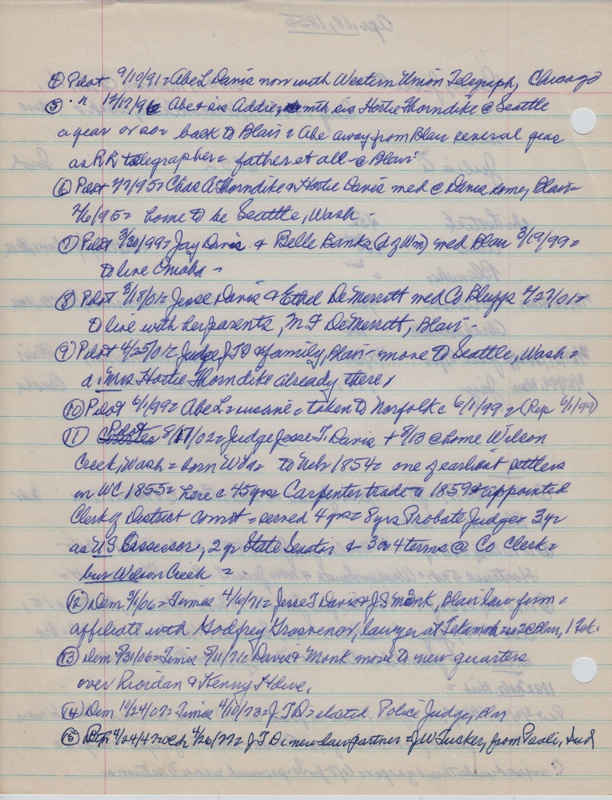 ④ Pilot 9/10/91 = Abe L Davis now with Western Union Telegraph, Chicago
⑤ " 12/17/96 Abe & sis Addie, with sis Hortie Thorndike @ Seattle
a year or so back to Blair = Abe away from Blair several years
as RR telegrapher = father et all @ Blair
⑥ Pilot 2/7/95 = Chas A Thorndike & Hortie Davis med @ Davis home, Blair =
2/6/95 = home to be Seattle, Wash
⑦ Pilot 3/30/99 = Jay Davis & Belle Banks (d of Wm) med Blair 3/19/99 =
to live Omaha -
⑧ Pilot 3/18/01 = Jesse Davis & Ethel DeMerrott med Co Bluffs 4/22/01 =
to live with her parents, N F DeMerrott, Blair
⑨ Pilot 4/25/01 = Judge J T D & family, Blair move to Seattle, Wash =
a Mrs Hortie Thorndike already there
⑩ Pilot 6/1/99 = Abe L = insane = taken to Norfolk 6/1/99 = (Rep 6/1/99)
⑪ Pilot 8/17/02 = Judge Jesse T. Davis + 8/13 @ home Wilson
Creek, Wash = born = to Nebr 1854 = one of earliest settlers
in WC 1855 = here 45 yrs Carpenter trade = 1859 appointed
Clerk of District Court = served 4 yrs = 8 yrs Probate Judge = 3 yr
as US Assessor, 2 yr State Senator & 3 or 4 terms @ Co Clerk =
bur Wilson Creek =
⑫ Dem 3/1/06 = Times 4/6/72 = Jesse T Davis & J S Monk, Blair law firm =
affiliate with Godfrey Grosvenor, lawyer at Tekamah = @ Blair, 1 Tek.
⑬ Dem 5/31/06 = Times 5/11/72 = Davis & Monk move to new quarters
over Riordan & Kenny Hdwe.
⑭ Dem 10/24/07 = Times 4/10/73 = J T D elected Police Judge,
⑮ 4/26/77 = J T D new law partner = J W Tucker, from Paoli, Ind